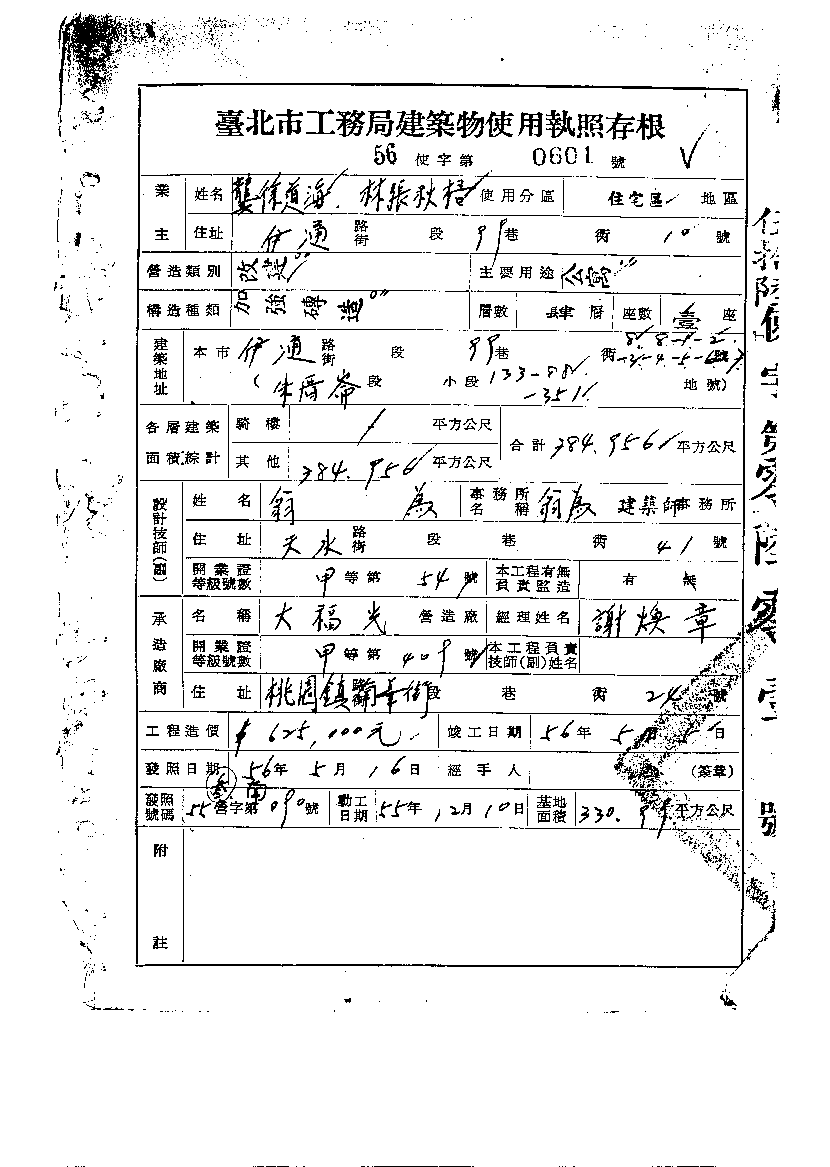 臺北市工務局建築物使用執照存根
56 使字第 0601 號
業主 姓名 龔徐道海、林張秋梧 使用分區 住宅區 地區
住址 伊通 路街 段 99巷 衖 10號
營造類別 改造 主要用途 公寓
構造種類 加強磚造 層數 肆層 座數 壹座
建築地址 本市 伊通 路街 段 99巷 衖 8-1-2-3-4-5-6號
(朱厝崙段 小段 133-88 -351 地號)
各層建築面積綜計 騎樓 / 平方公尺 合計 384.956 平方公尺
其他 384.956 平方公尺
設計技師(副) 姓名 翁為 事務所名稱 翁為 建築師事務所
住址 天水 路街 段 巷 衖 41號
開業證等級號數 甲等第 54號 本工程有無負責監造 有 無
承造廠商 名稱 大福光 營造廠 經理姓名 謝煥章
開業證等級號數 甲等第 409號 本工程負責技師(副)姓名
住址 桃園鎮 街 段 巷 衖 24號
工程造價 $625,000元 竣工日期 56年 5月 5日
發照日期 56年 5月 16日 經手人 (簽章)
發照號碼 55營字第 090號 動工日期 55年 12月 10日 基地面積 330.99 平方公尺
附註
伍拾陸使字第零陸零壹號